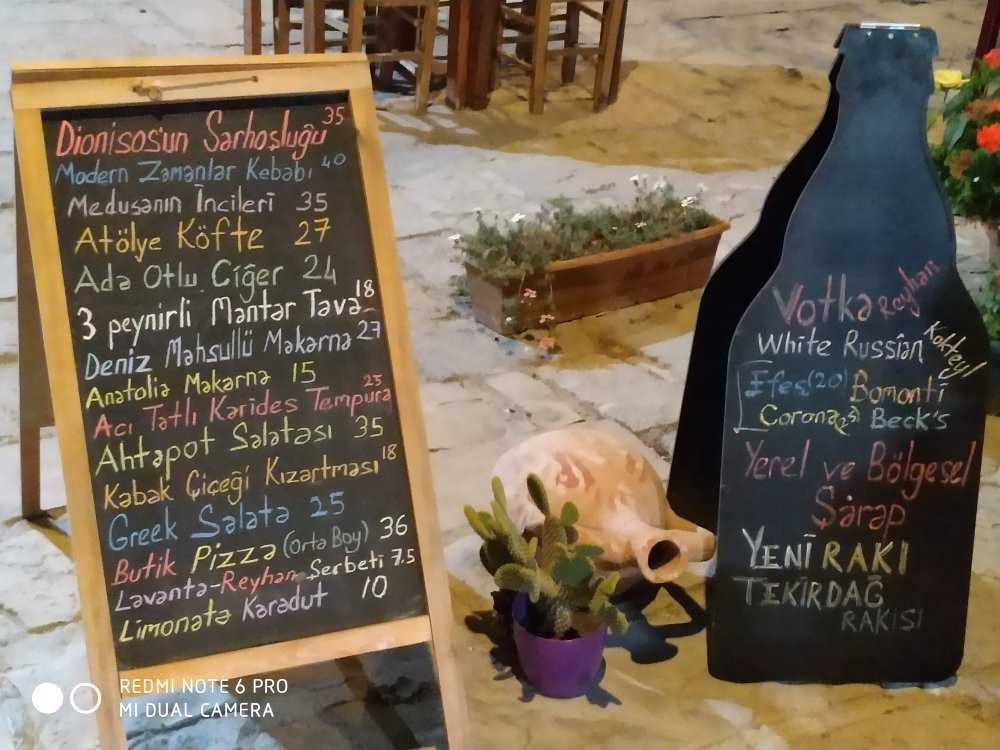 Dionisos'un Sarhoşluğu 35
Modern Zamanlar Kebabı 40
Medusanın İncileri 35
Atölye Köfte 27
Ada Otlu Ciğer 24
3 peynirli Mantar Tava 18
Deniz Mahsullü Makarna 27
Anatolia Makarna 15
Acı Tatlı Karides Tempura 25
Ahtapot Salatası 35
Kabak Çiçeği Kızartması 18
Greek Salata 25
Butik Pizza (Orta Boy) 36
Lavanta-Reyhan Şerbeti 7.5
Limonata Karadut 10
Votka Reyhan
White Russian Kokteyl
Efes (20) Bomonti
Corona 25 Beck's
Yerel ve Bölgesel
Şarap
YENİ RAKI
TEKİRDAĞ
RAKISI
REDMI NOTE 6 PRO
MI DUAL CAMERA